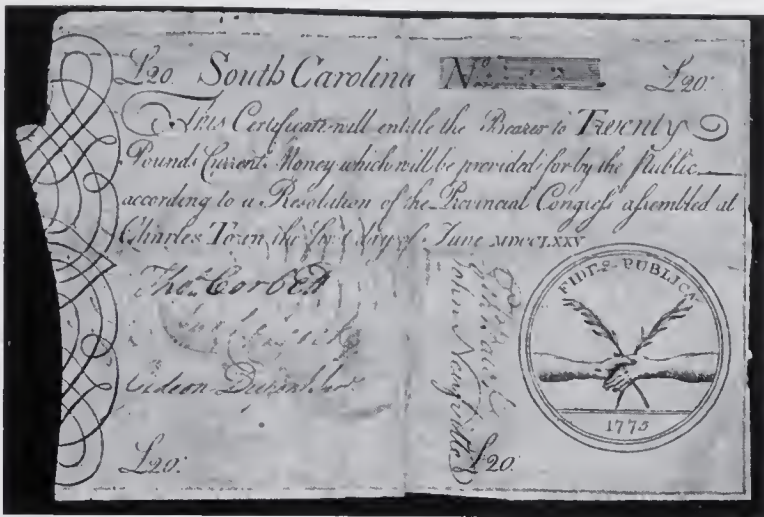 £20. South Carolina No. £20.
This Certificate will entitle the Bearer to Twenty
Pounds Current Money which will be provided for by the Public
according to a Resolution of the Provincial Congress assembled at
Charles Town the first day of June MDCCLXXV.
Thos. Corbett
Gideon
John
FIDES PUBLICA
1775
£20. £20.